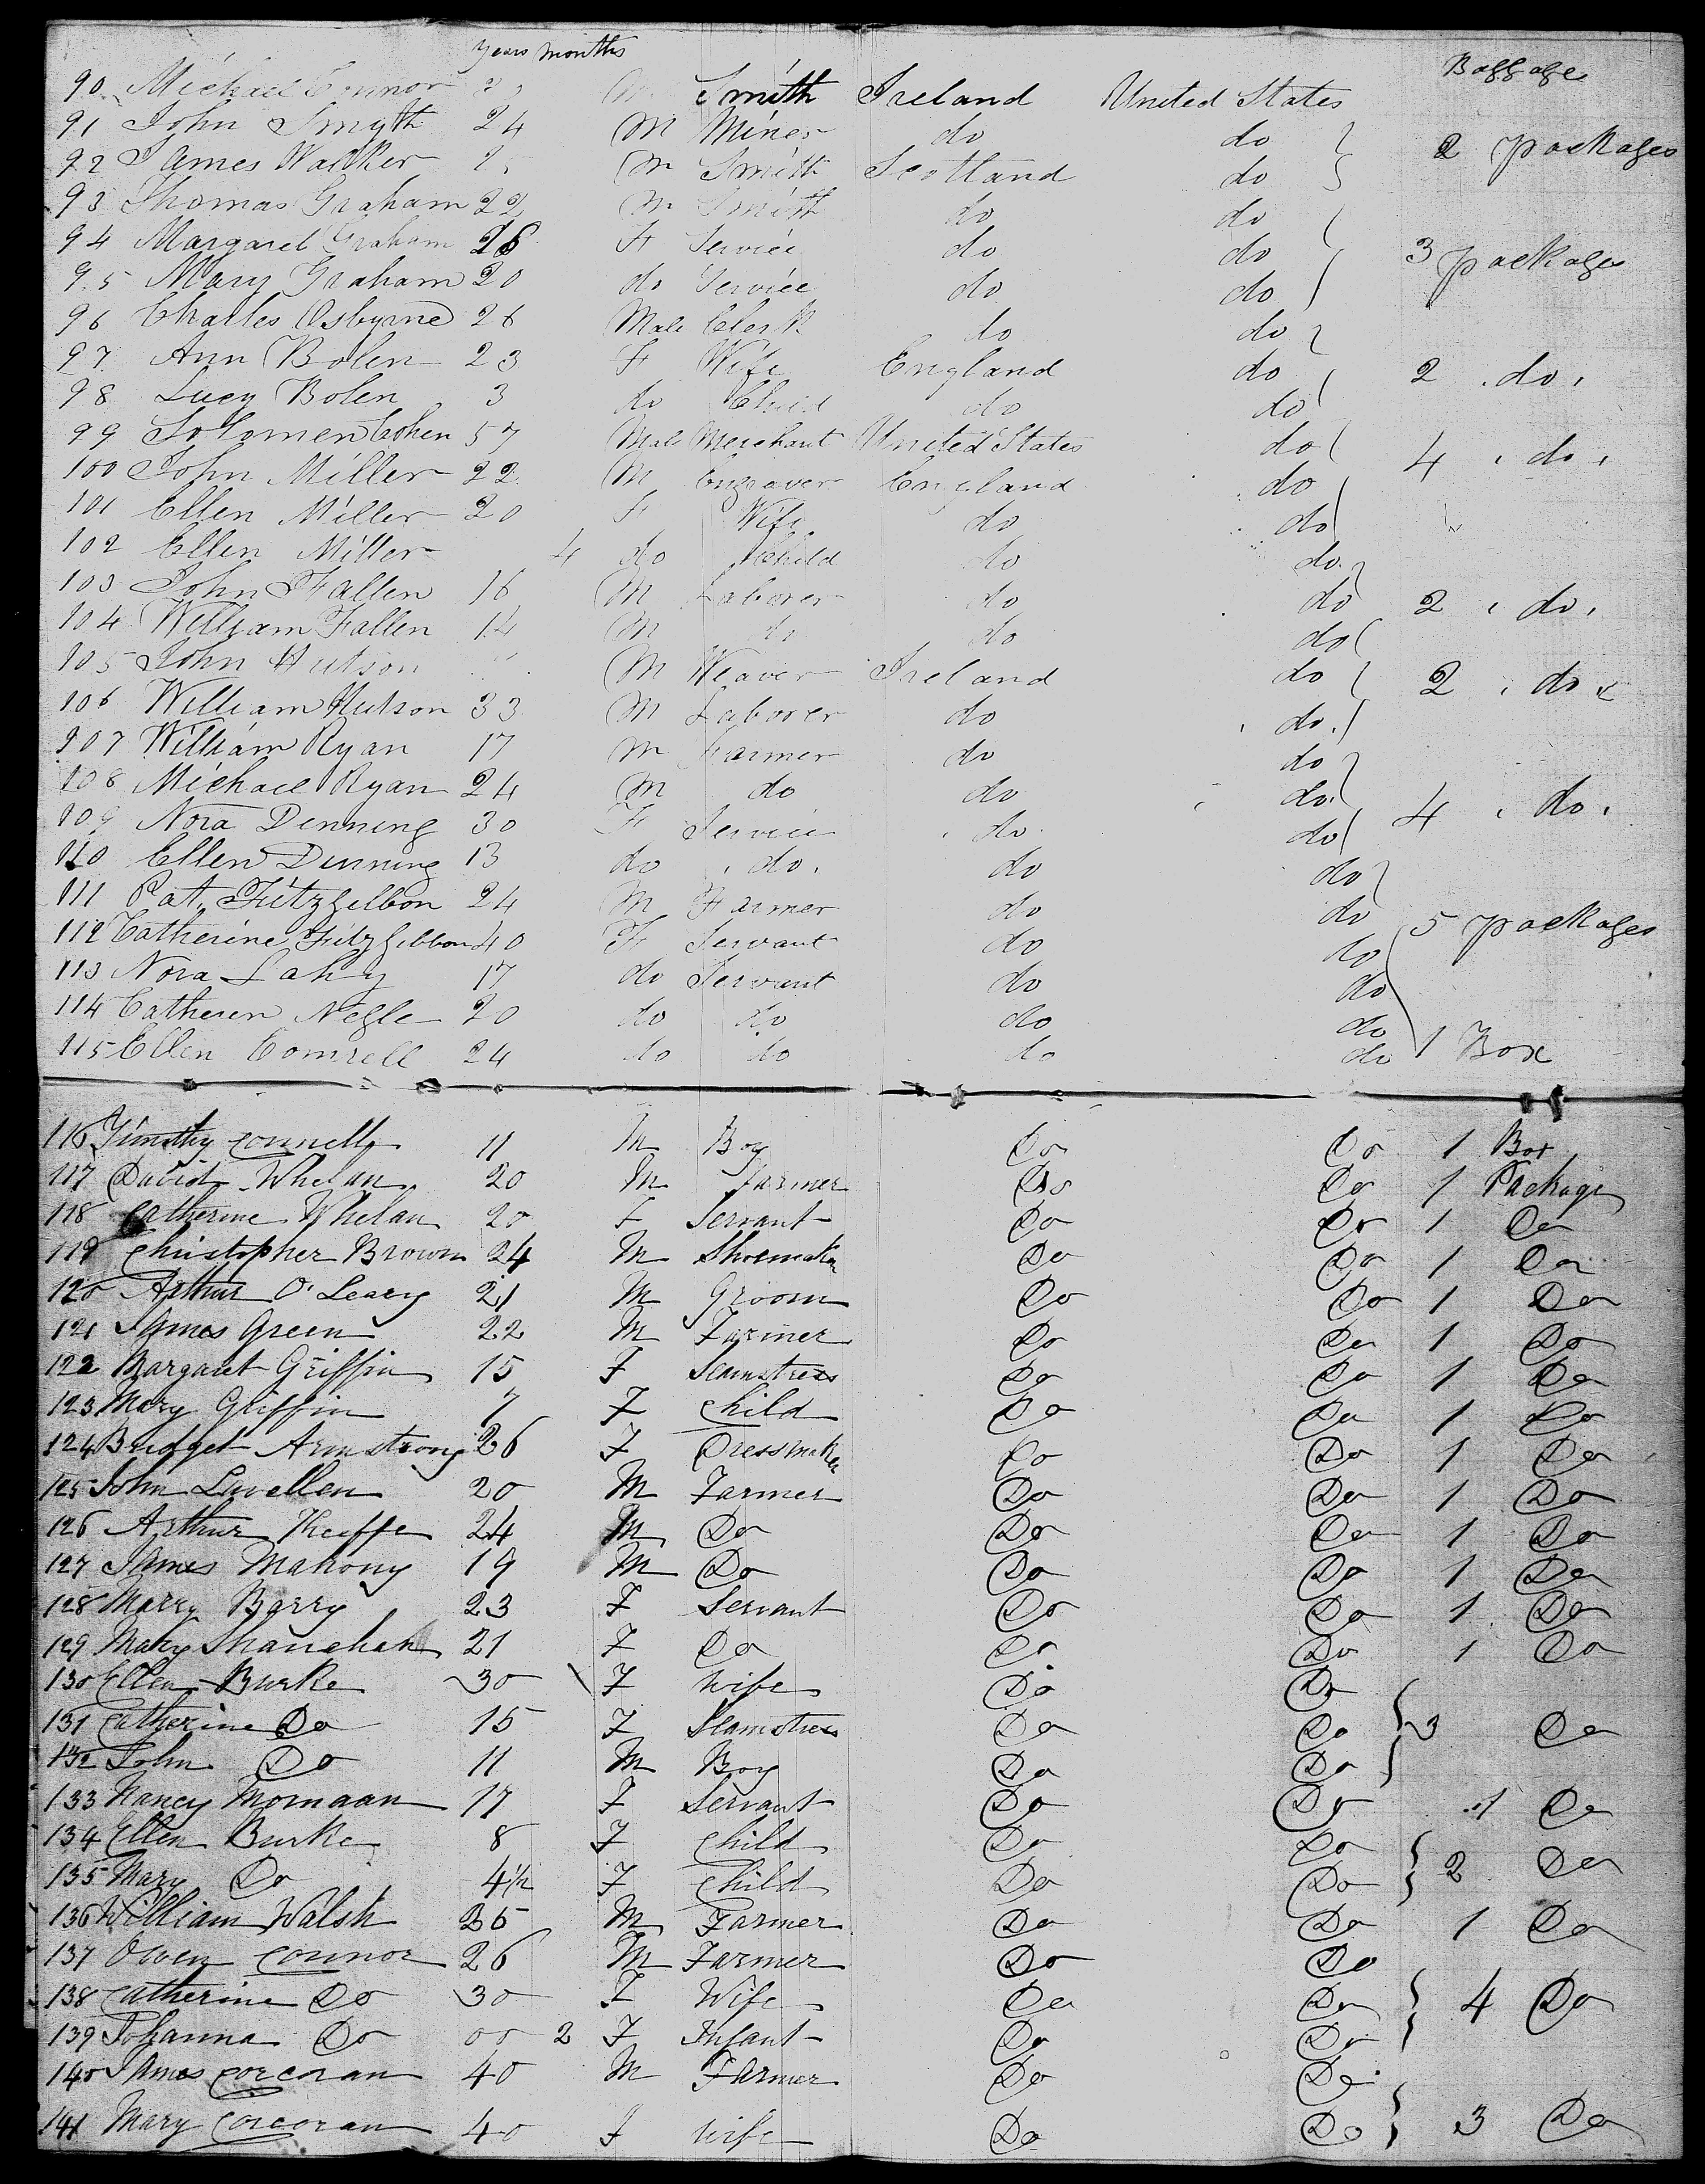 Years Months
Baggage
90 Michael Connor M Smith Ireland United States
91 John Smyth 24 M Miner do do } 2 packages
92 James Walker M Smith Scotland do
93 Thomas Graham 22 M Smith do do
94 Margaret Graham F Service do do 3 packages
95 Mary Graham 20 do Service do do
96 Charles Osbyrne 26 Male Clerk do do
97 Ann Bolen 23 F Wife England do 2 do
98 Lucy Bolen 3 do Child do do
99 Solomen Cohen 57 Male Merchant United States do 4 do
100 John Miller 22 M Engraver England do
101 Ellen Miller 20 F Wife do do
102 Ellen Miller 4 do Child do do
103 John Fallen 16 M Laborer do do 2 do
104 William Fallen 14 M do do do
105 John Hutson M Weaver Ireland do 2 do
106 William Hutson 33 M Laborer do do
107 William Ryan 17 M Farmer do do
108 Michael Ryan 24 M do do do 4 do
109 Nora Denning 30 F Service do do
110 Ellen Denning 13 do do do do
111 Pat. Fitzgelbon 24 M Farmer do do 5 packages
112 Catherine Fitzgibbon 40 F Servant do do
113 Nora Lahy 17 do Servant do do
114 Catheren Negle 20 do do do do
115 Ellen 24 do do do do 1 Box
116 Timothy Connell 11 M Boy Do Do 1 Box
117 David Whelan 20 M Farmer Do Do 1 Package
118 Catherine Whelan 20 F Servant Do Do 1 Do
119 Christopher Brown 24 M Shoemaker Do Do 1 Do
120 Arthur O'Leary 21 M Groom Do Do 1 Do
121 James Green 22 M Farmer Do Do 1 Do
122 Margaret Griffin 15 F Seamstress Do Do 1 Do
123 Mary Griffin 7 F Child Do Do 1 Do
124 Bridget Armstrong 26 F Dressmaker Do Do 1 Do
125 John Lavellen 20 M Farmer Do Do 1 Do
126 Arthur Keeffe 24 M Do Do Do 1 Do
127 James Mahony 19 M Do Do Do 1 Do
128 Marry Barry 23 F Servant Do Do 1 Do
129 Mary Shanehan 21 F Do Do Do 1 Do
130 Ellen Burke 30 F Wife Do Do
131 Catherine Do 15 F Seamstress Do Do } 3 Do
132 John Do 11 M Boy Do Do
133 Nancy 17 F Servant Do Do 1 Do
134 Ellen Burke 8 F Child Do Do
135 Mary Do 4½ F Child Do Do } 2 Do
136 William Walsh 35 M Farmer Do Do 1 Do
137 Owen Connor 26 M Farmer Do Do
138 Catherine Do 30 F Wife Do Do } 4 Do
139 Johanna Do 00 2 F Infant Do Do
140 James Corcoran 40 M Farmer Do Do
141 Mary Corcoran 40 F Wife Do Do } 3 Do